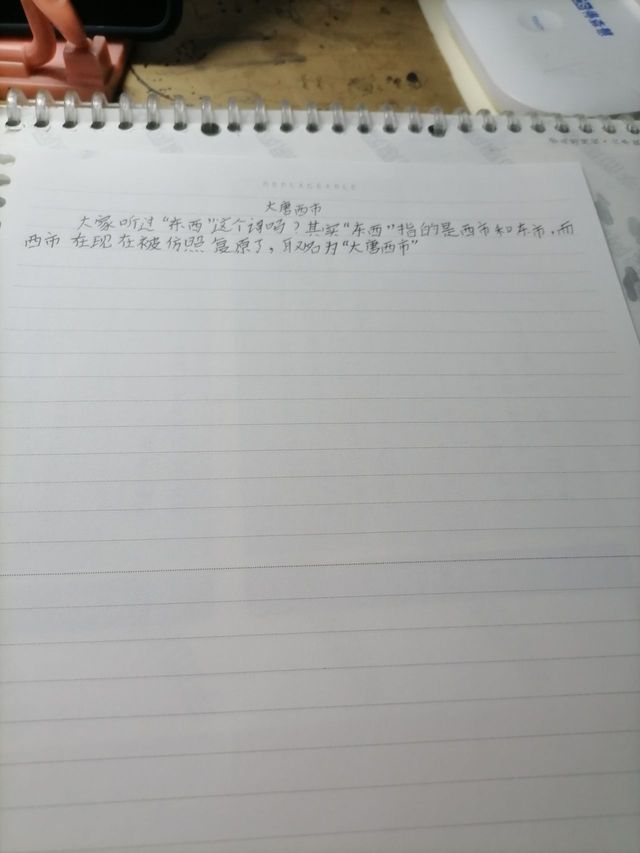 REPLACEABLE
大唐西市
大家听过“东西”这个词吗？其实“东西”指的是西市和东市，而
西市 在现在被仿照复原了，取名为“大唐西市”